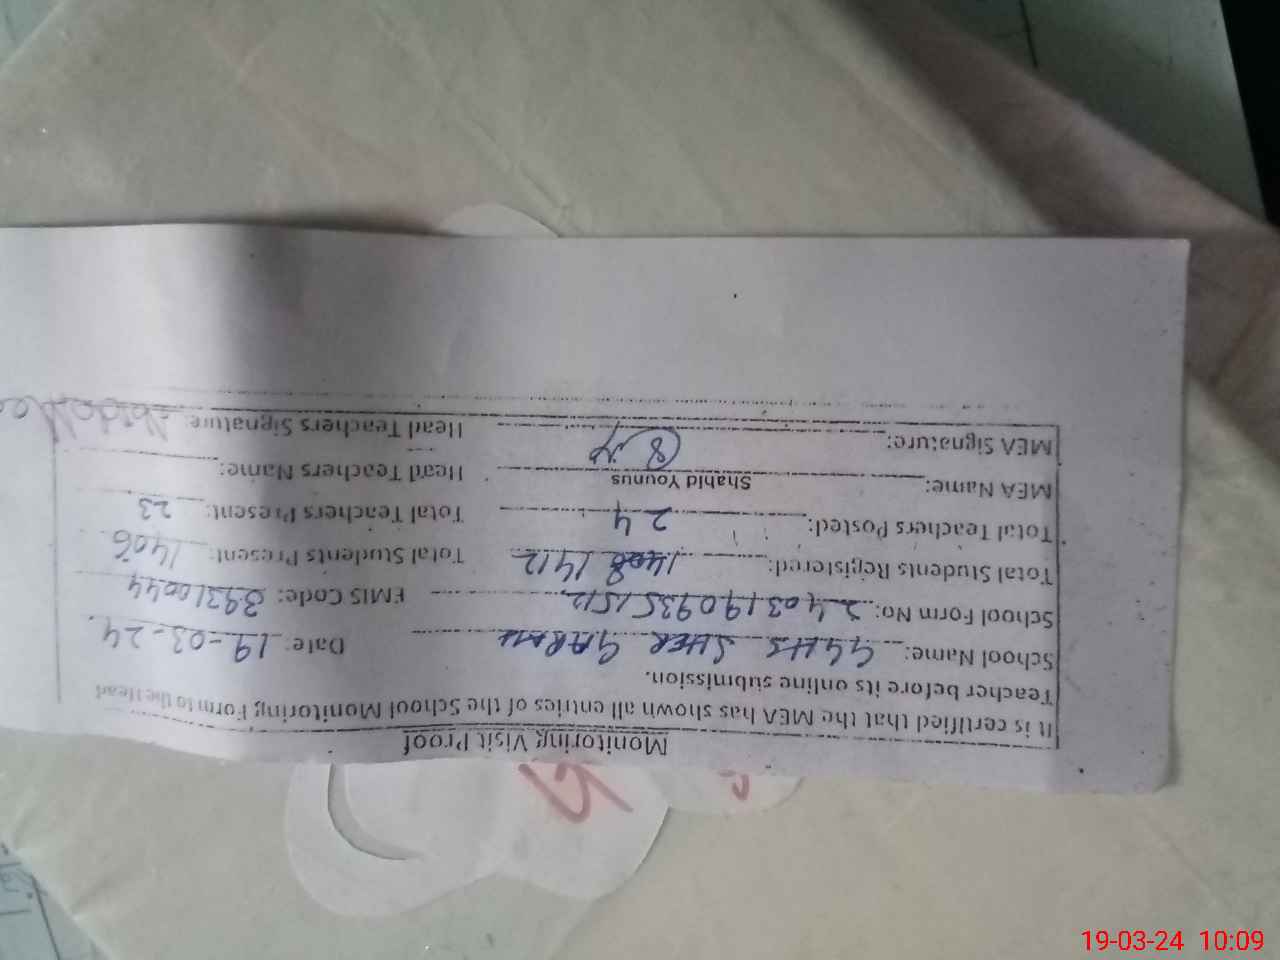 Monitoring Visit Proof
It is certified that the MEA has shown all entries of the School Monitoring Form to the Head
Teacher before its online submission.
School Name: GGHS SHER GARAH Date: 19-03-24.
School Form No: 24031909351512 EMIS Code: 39310044
Total Students Registered: 1408 1412 Total Students Present: 1406
Total Teachers Posted: 24 Total Teachers Present: 23
MEA Name: Shahid Younus Head Teachers Name:
MEA Signature: Head Teachers Signature:
19-03-24 10:09